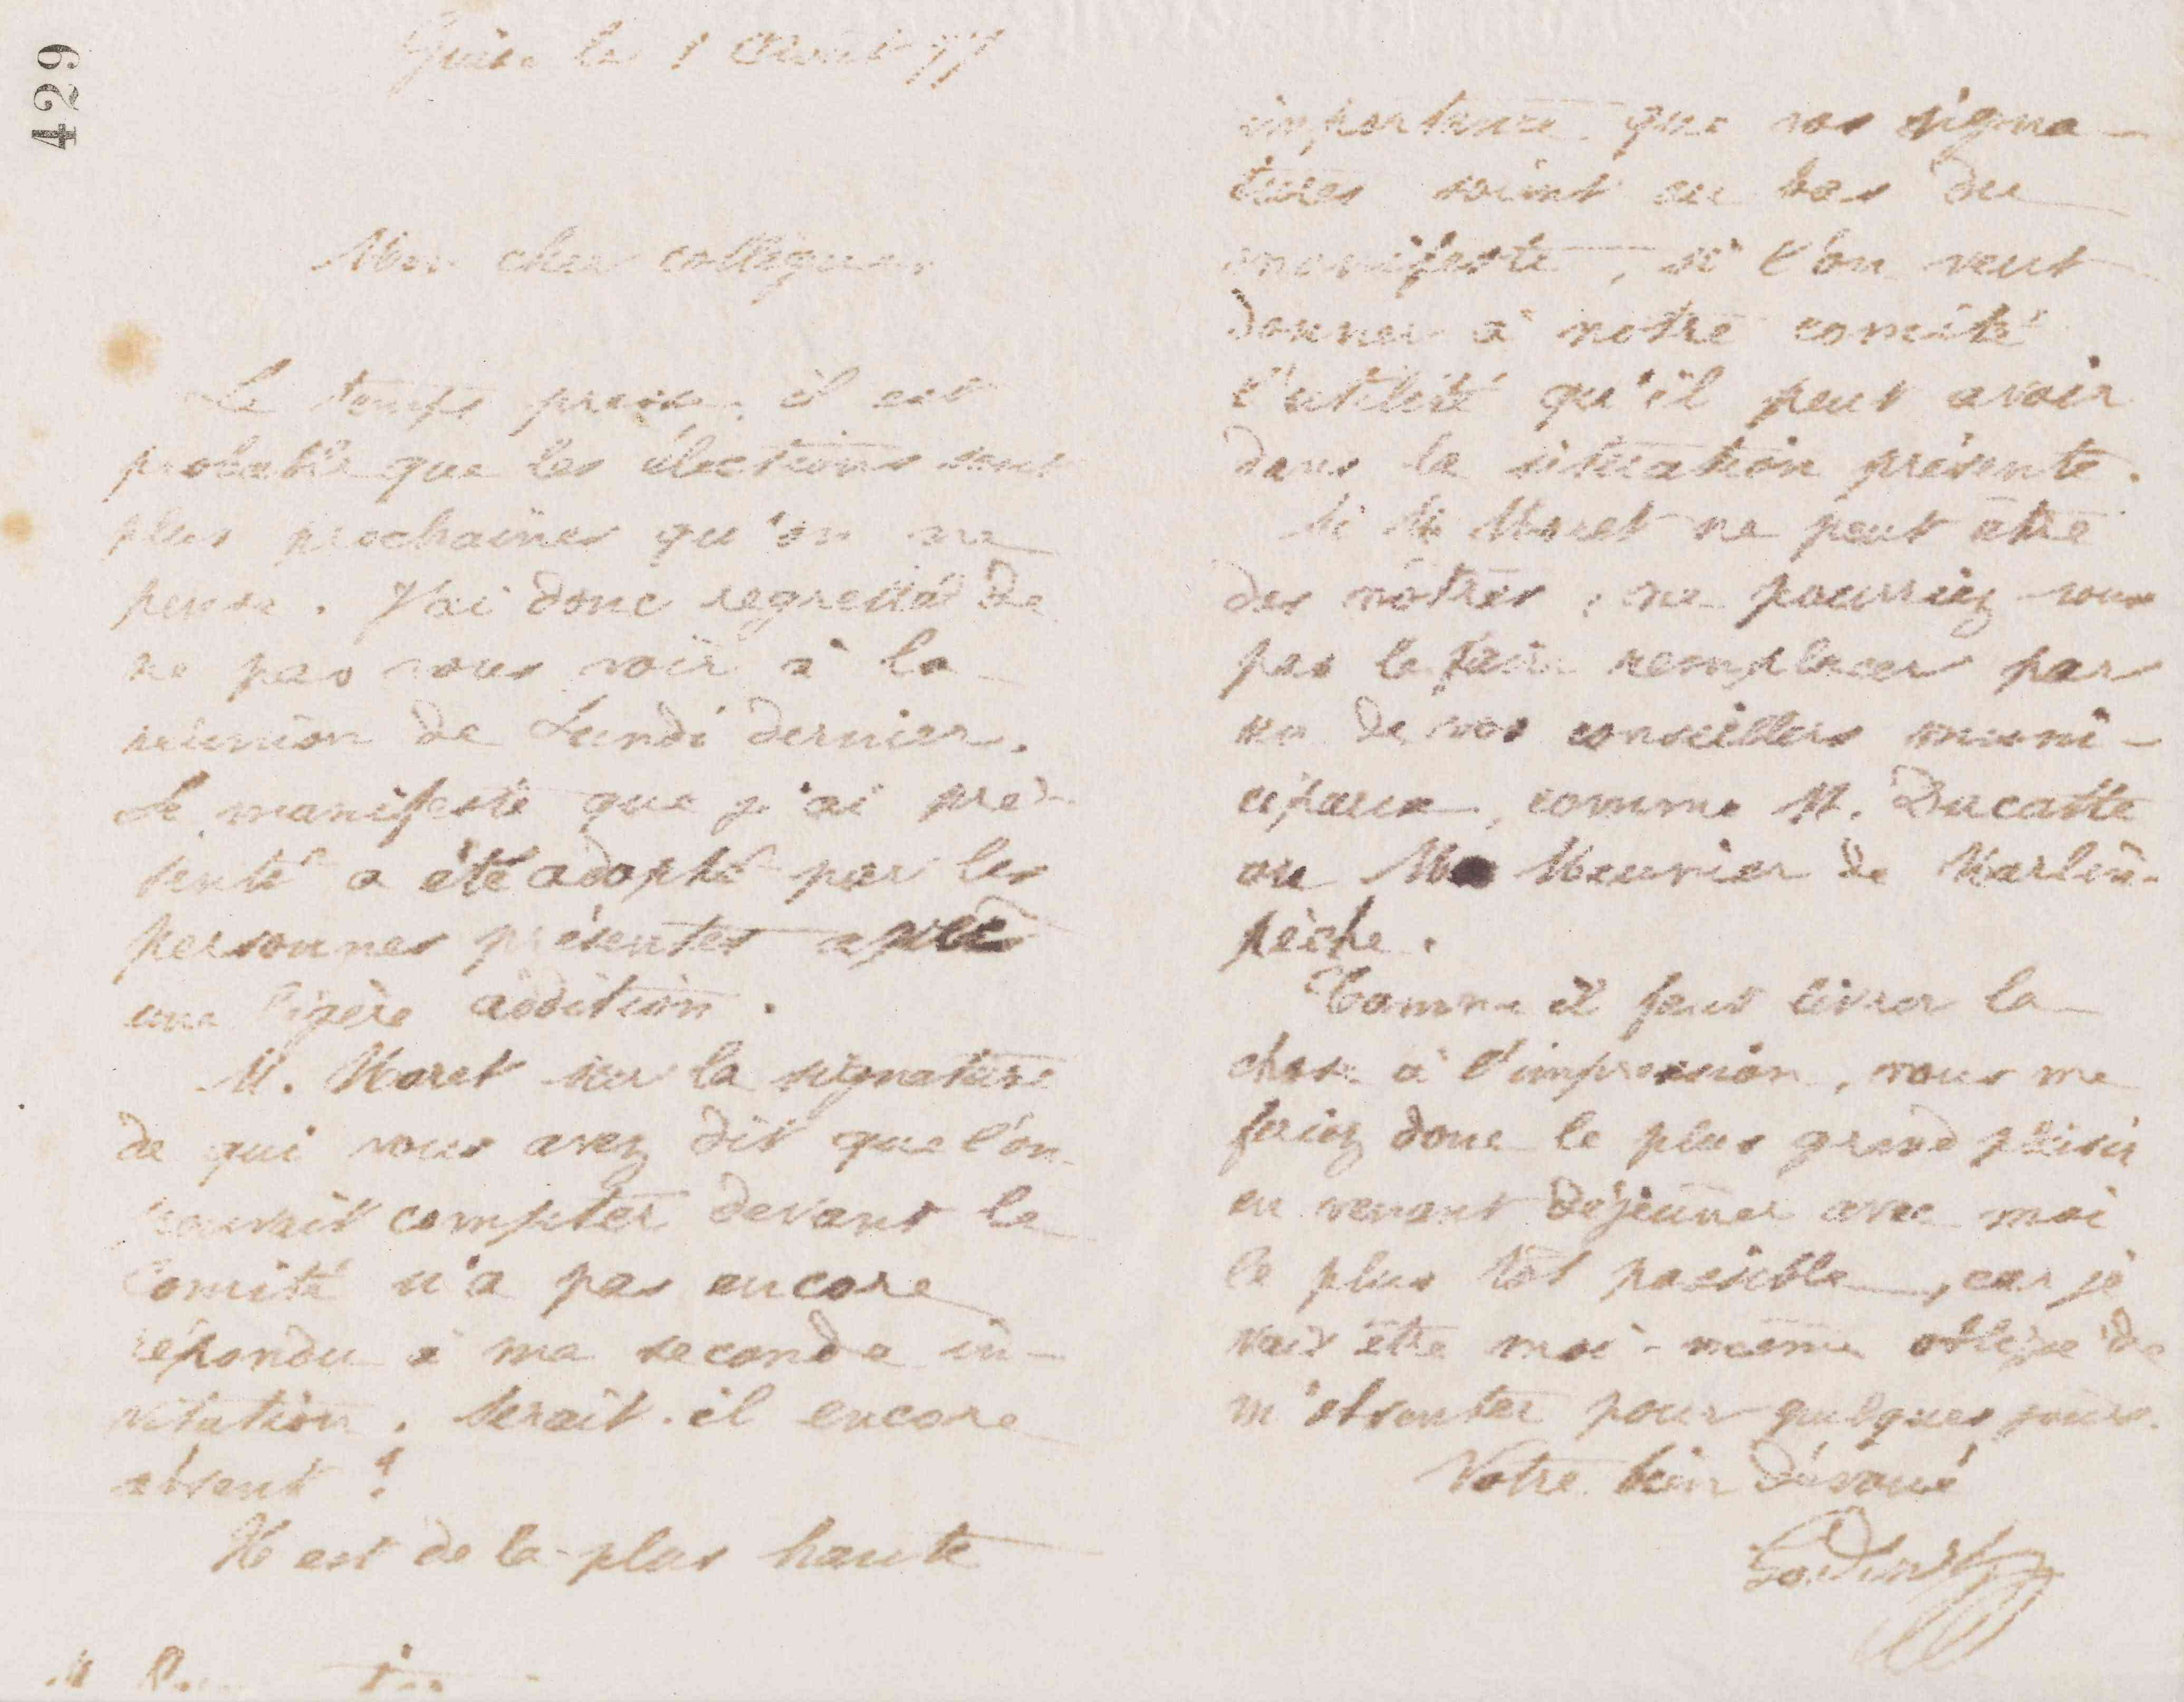 429
Guise le 1 Août 77
Mon cher collègue,
Le temps presse, il est
probable que les élections sont
plus prochaines qu'on ne
pense. J'ai donc regretté de
ne pas vous voir à la
réunion de Lundi dernier.
Le manifeste que j'ai pré-
senté a été adopté par les
personnes présentes après
une légère addition.
M. Moret sur la signature
de qui vous avez dit que l'on
pouvait compter devant le
Comité n'a pas encore
répondu à ma seconde in-
vitation. Serait-il encore
absent ?
Il est de la plus haute
M
importance que vos signa-
tures soient au bas du
manifeste, si l'on veut
donner à notre comité
l'utilité qu'il peut avoir
dans la situation présente.
Si M. Moret ne peut être
des nôtres, ne pourriez vous
pas le faire remplacer par
un de vos conseillers muni-
cipaux, comme M. Ducatte
ou M. Meunier de Warlin-
pèche.
Comme il faut livrer la
chose à l'impression, vous me
feriez donc le plus grand plaisir
en venant déjeuner avec moi
le plus tôt possible, car je
vais être moi-même obligé de
m'absenter pour quelques jours.
Votre bien dévoué
Godin